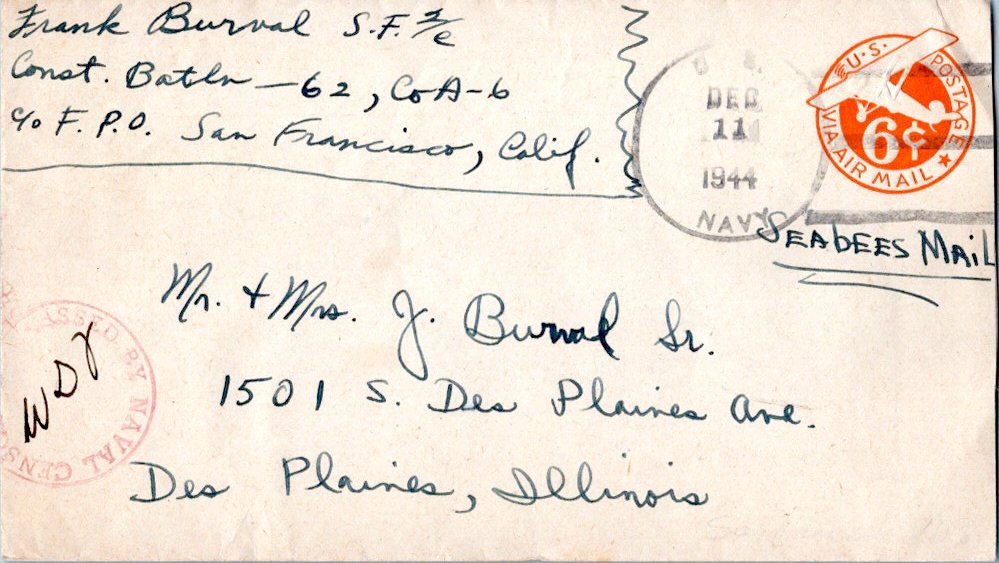 Frank Burval S.F. 2/c
Const. Batln - 62, Co A-6
c/o F.P.O. San Francisco, Calif.
U. S.
DEC
11
1944
NAVY
U.S. POSTAGE
6¢
VIA AIR MAIL
SEAbEES MAiL
Mr. + Mrs. J. Burval Sr.
1501 S. Des Plaines Ave.
Des Plaines, Illinois
PASSED BY NAVAL CENSOR
WDY